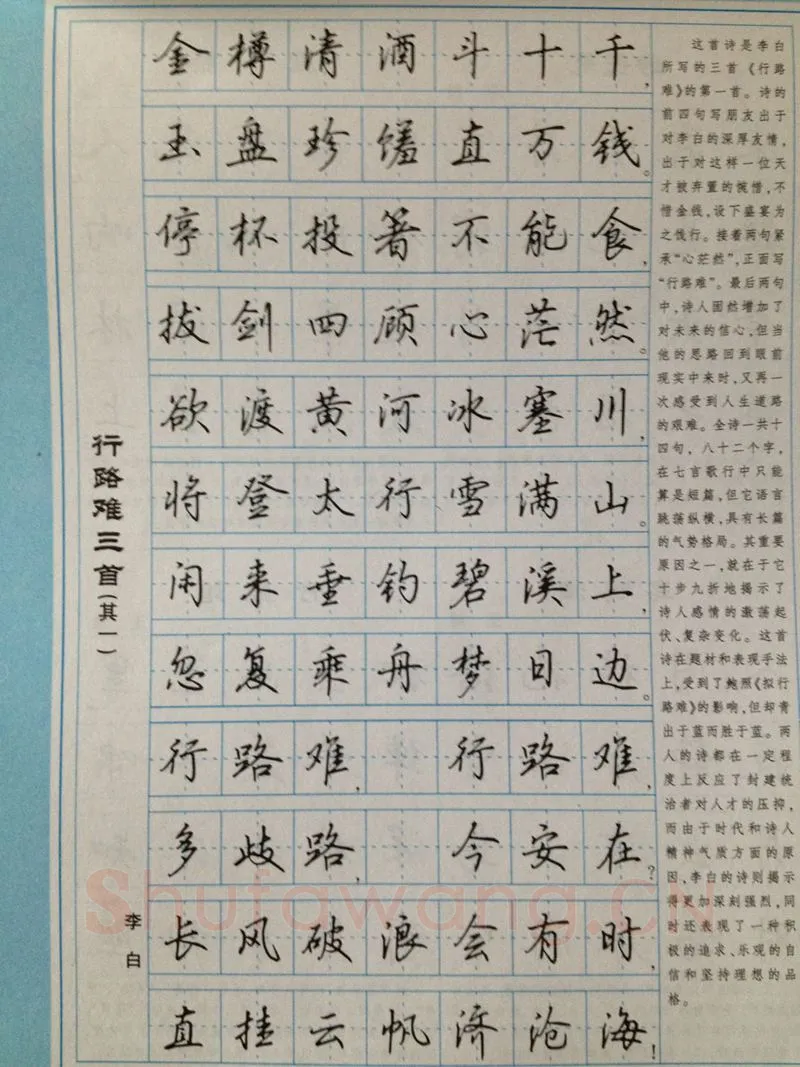 行路难三首(其一)
李白
金樽清酒斗十千,
玉盘珍馐直万钱。
停杯投箸不能食,
拔剑四顾心茫然。
欲渡黄河冰塞川,
将登太行雪满山。
闲来垂钓碧溪上,
忽复乘舟梦日边。
行路难, 行路难,
多歧路, 今安在?
长风破浪会有时,
直挂云帆济沧海!
这首诗是李白
所写的三首《行路
难》的第一首。诗的
前四句写朋友出于
对李白的深厚友情,
出于对这样一位天
才被弃置的惋惜,不
惜金钱,设下盛宴为
之饯行。接着两句紧
承“心茫然”,正面写
“行路难”。最后两句
中,诗人固然增加了
对未来的信心,但当
他的思路回到眼前
现实中来时,又再一
次感受到人生道路
的艰难。全诗一共十
四句,八十二个字,
在七言歌行中只能
算是短篇,但它语言
跳荡纵横,具有长篇
的气势格局。其重要
原因之一,就在于它
十步九折地揭示了
诗人感情的激荡起
伏、复杂变化。这首
诗在题材和表现手法
上,受到了鲍照《拟行
路难》的影响,但却青
出于蓝而胜于蓝。两
人的诗都在一定程
度上反应了封建统
治者对人才的压抑,
而由于时代和诗人
精神气质方面的原
因,李白的诗则揭示
得更加深刻强烈,同
时还表现了一种积
极的追求、乐观的自
信和坚持理想的品
格。
Shufawang.cn